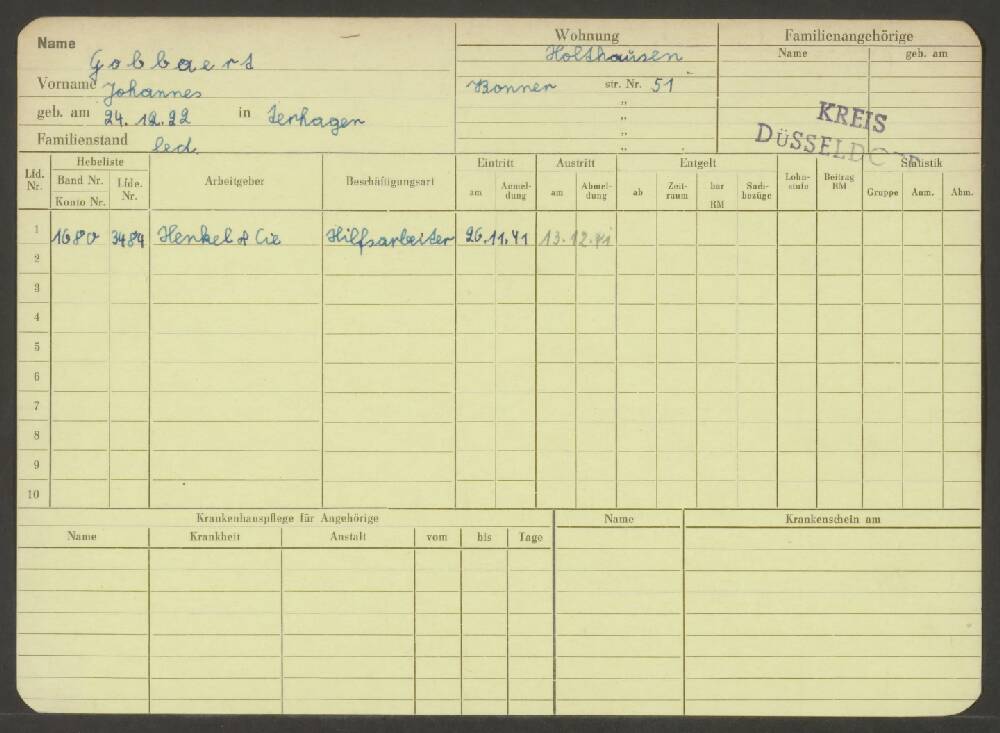 Name Gobbaert
Vorname Johannes
geb. am 24. 12. 22 in Terhagen
Familienstand led.
Wohnung
Holthausen
Bonner str. Nr. 51
"
"
"
"
Familienangehörige
Name geb. am
KREIS
DÜSSELDORF
Lfd. Nr.
Hebeliste
Band Nr.
Konto Nr.
Lfde. Nr.
Arbeitgeber
Beschäftigungsart
Eintritt
am
Anmeldung
Austritt
am
Abmeldung
Entgelt
ab
Zeitraum
bar RM
Sachbezüge
Lohnstufe
Beitrag RM
Statistik
Gruppe Anm. Abm.
1 1680 3484 Henkel & Cie Hilfsarbeiter 26.11.41 13.12.41
2
3
4
5
6
7
8
9
10
Krankenhauspflege für Angehörige
Name Krankheit Anstalt vom bis Tage
Name Krankenschein am